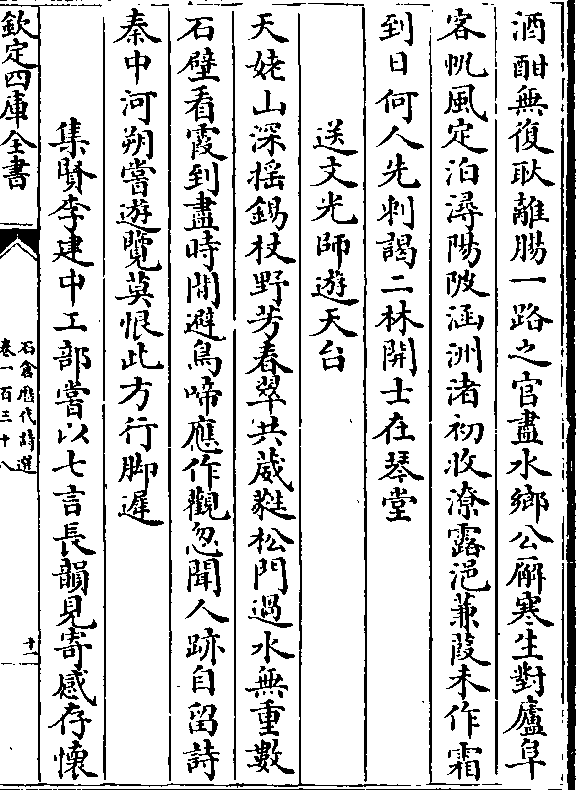 酒酣無復耿離腸一路之官盡水鄉公廨寒生對廬阜
客帆風定泊潯陽陂涵洲渚初收潦露浥蒹葭未作霜
到日何人先刺謁二林開士在琴堂
送文光師遊天台
天姥山深搖錫杖野芳春翠共葳蕤松門過水無重數
石壁看霞到盡時閒避鳥啼應作觀忽聞人跡自留詩
秦中河朔嘗遊覽莫恨此方行脚遲
集賢李建中工部嘗以七言長韻見寄感存懷
欽定四庫全書
石倉歷代詩選
卷一百三十八
十一